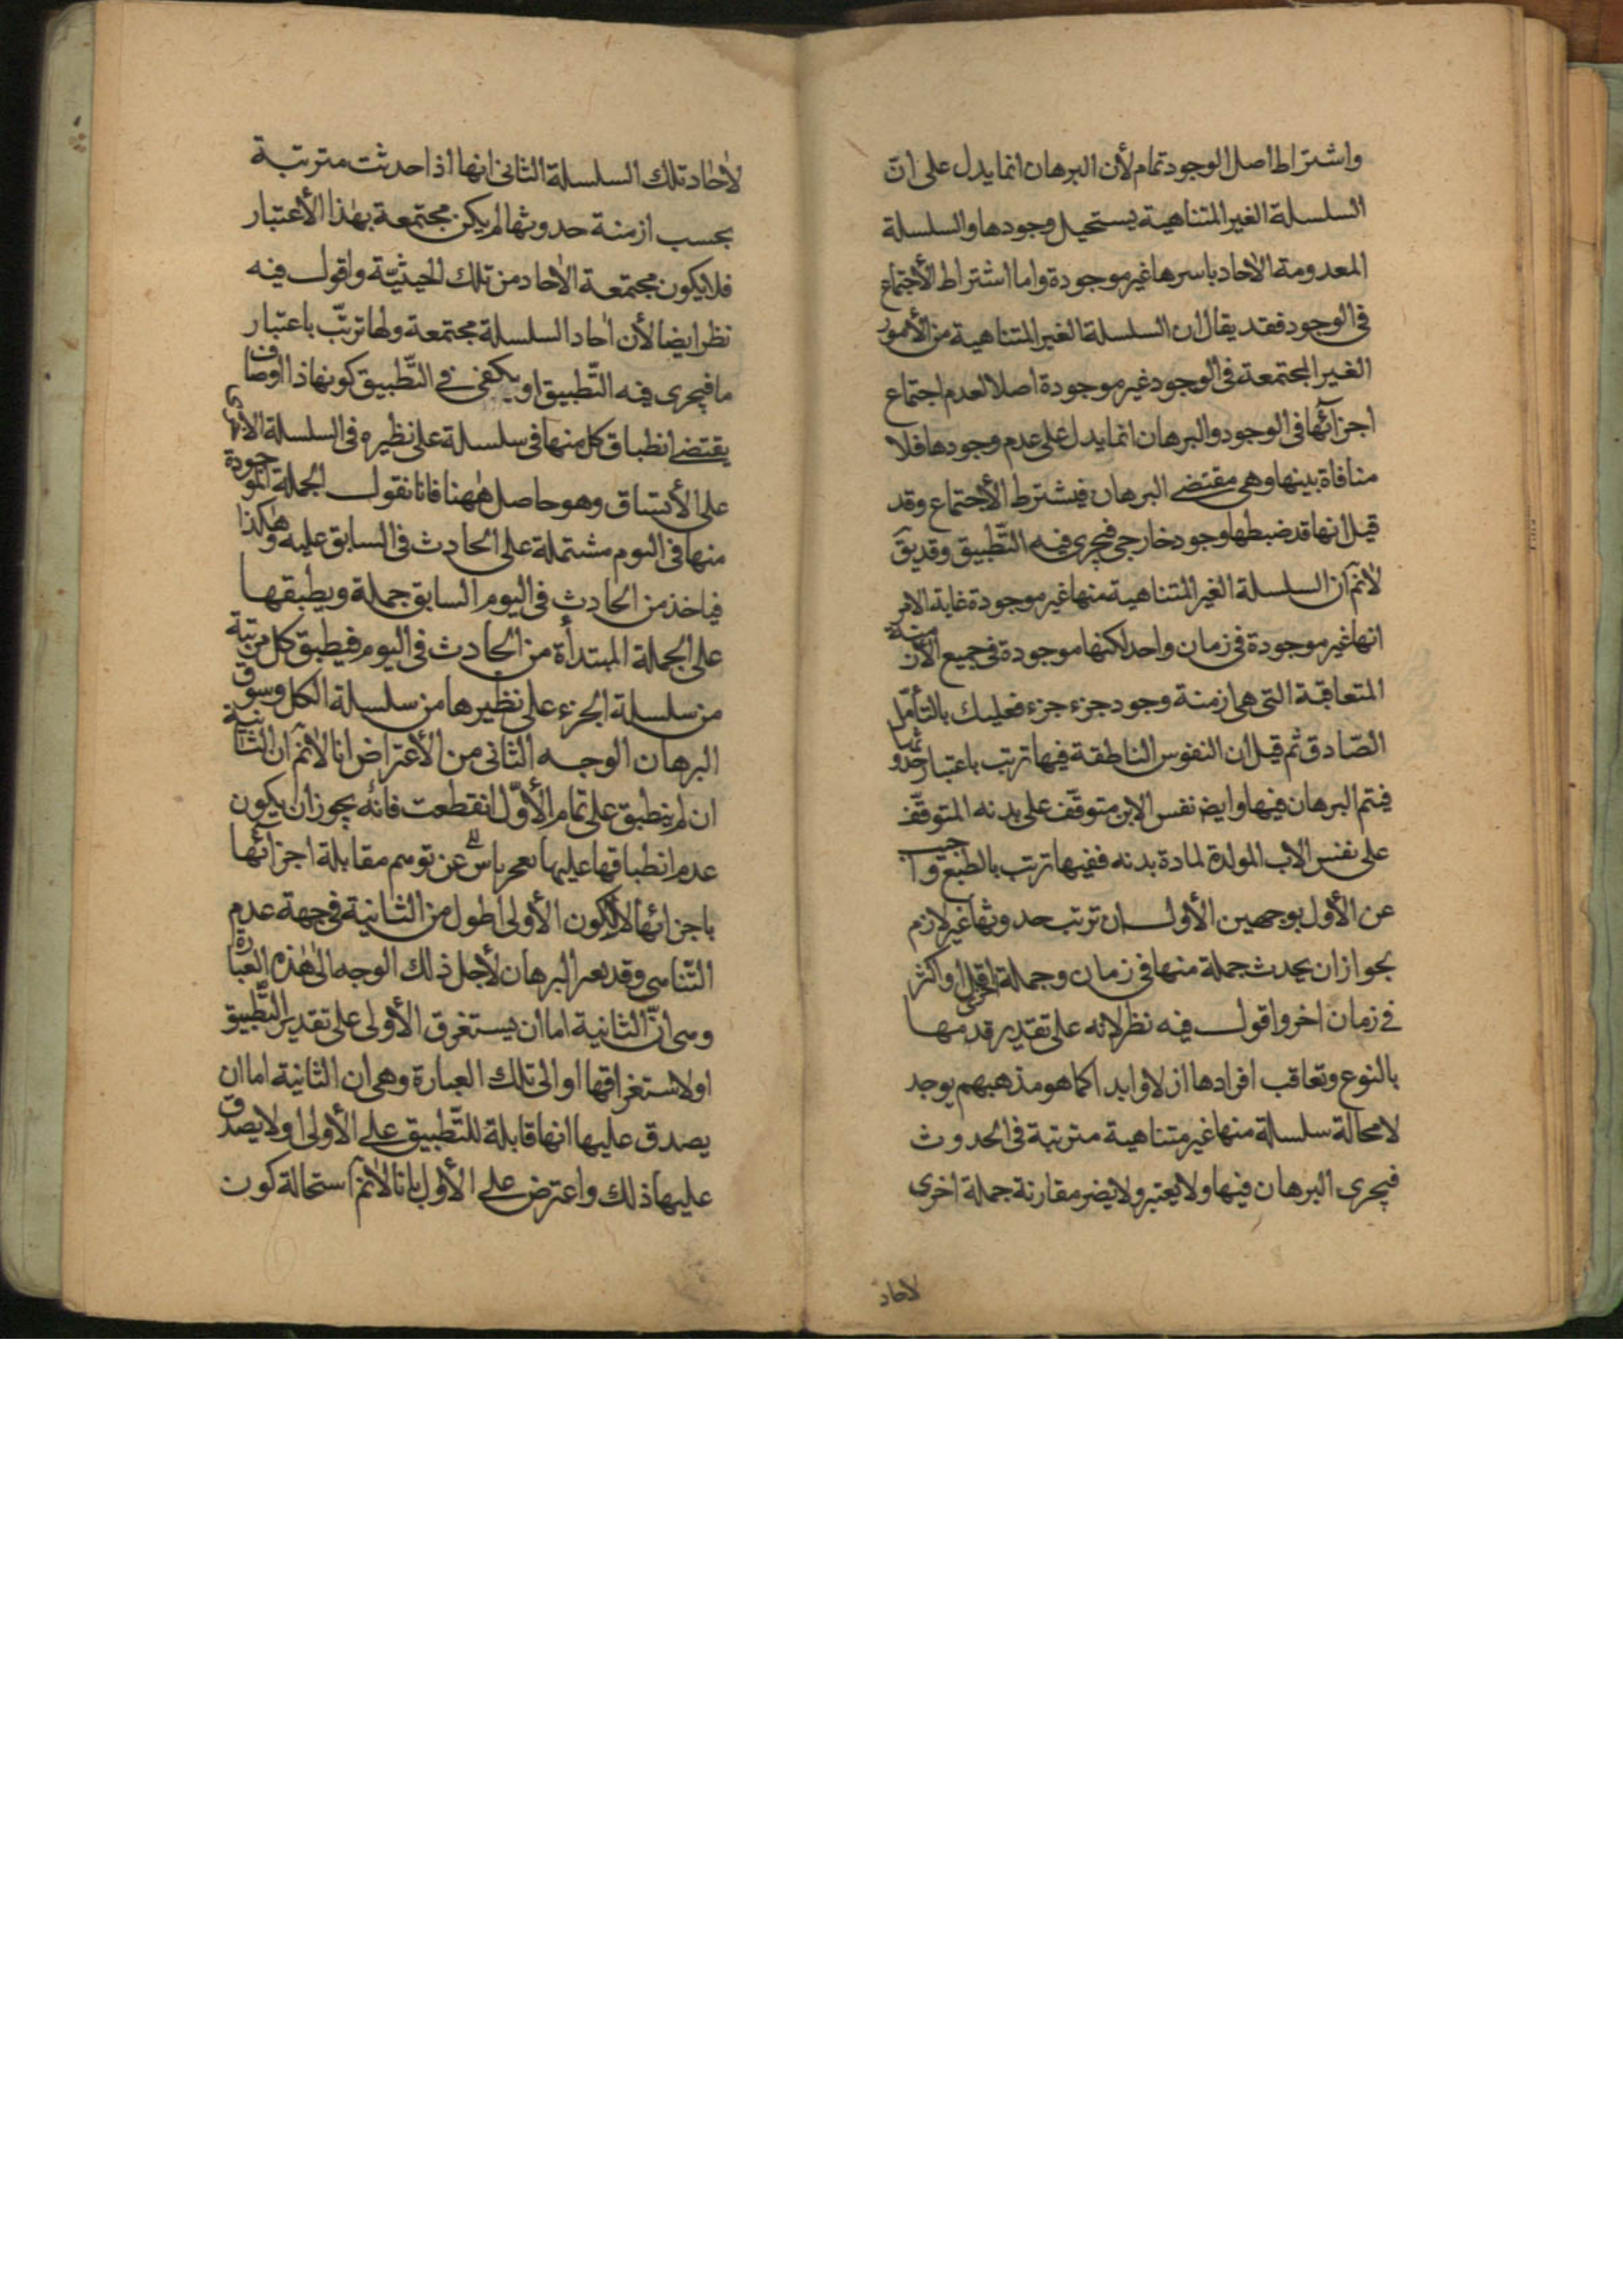 واشتراط اصل الوجود تمام لأن البرهان انما يدل على انّ
السلسلة الغير المتناهية يستحيل وجودها والسلسلة
المعدومة الاحاد باسرها غير موجودة واما اشتراط الأجتماع
فى الوجود فقد يقال ان السلسلة الغير المتناهية من الأمور
الغير المجتمعة فى الوجود غير موجودة اصلا لعدم اجتماع
اجزائها فى الوجود والبرهان انما يدل على عدم وجودها فلا
منافاة بينها وهى مقتضى البرهان فيشترط الأجتماع وقد
قيل انها قد ضبطها وجود خارجى فيجرى فيه التّطبيق وقد يق
لانمّ ان السلسلة الغير المتناهية منها غير موجودة غاية الامر
انها غير موجودة فى زمان واحد لكنها موجودة فى جميع الأزمنة
المتعاقبة التى هى ازمنة وجود جزء جزء فعليك بالتأمّل
الصّادق ثم قيل ان النفوس الناطقة فيها ترتب باعتبار حدوثها
فيتم البرهان فيها وايض نفس الابن متوقّف على بدنه المتوقّف
على نفس الاب المولدة لمادة بدنه ففيها ترتب بالطبع واجيب
عن الأول بوجهين الأول ان ترتب حدوثها غير لازم
بجواز ان يحدث جملة منها فى زمان وجملة اخرى اقل او اكثر
فى زمان اخر واقول فيه نظر لانه على تقدير قدمها
بالنوع وتعاقب افرادها ازلا وابدا كما هو مذهبهم يوجد
لامحالة سلسلة منها غير متناهية مترتبة فى الحدوث
فيجرى البرهان فيها ولا يعتبر ولا يضر مقارنة جملة اخرى
لاحاد
لاحاد تلك السلسلة الثانى انها اذا حدثت مترتبة
بحسب ازمنة حدوثها لم يكن مجتمعة بهذا الأعتبار
فلا يكون مجتمعة الاحاد من تلك الحيثيّة واقول فيه
نظر ايضا لأن احاد السلسلة مجتمعة ولها ترتّب باعتبار
ما فيجرى فيه التّطبيق او يكفى فى التّطبيق كونها ذا اوصاف
يقتضى انطباق كل منها فى سلسلة على نظيره فى السلسلة الاخرى
على الأتساق وهو حاصل ههنا فانا نقول الجملة الموجودة
منها فى اليوم مشتملة على الحادث فى السابق عليه وهكذا
فياخذ من الحادث فى اليوم السابق جملة ويطبقها
على الجملة المبتدأة من الحادث فى اليوم فيطبق كل مرتبة
من سلسلة الجزء على نظيرها من سلسلة الكل وسوق
البرهان الوجه الثانى من الأعتراض انا لانمّ ان الثانية
ان لم ينطبق على تمام الأوّل انقطعت فانه يجوز ان يكون
عدم انطباقها عليها عن توهم مقابلة اجزائها
باجزائها لا لكون الأولى اطول من الثانية فى جهة عدم
التّناهى وقد يغير البرهان لأجل ذلك الوجه الى هذه العبارة
وهى انّ الثانية اما ان يستغرق الأولى على تقدير التّطبيق
او لا يستغراقها او الى تلك العبارة وهى ان الثانية اما ان
يصدق عليها انها قابلة للتّطبيق على الأولى او لا يصدق
عليها ذلك واعترض على الأول بانا لانمّ استحالة كون